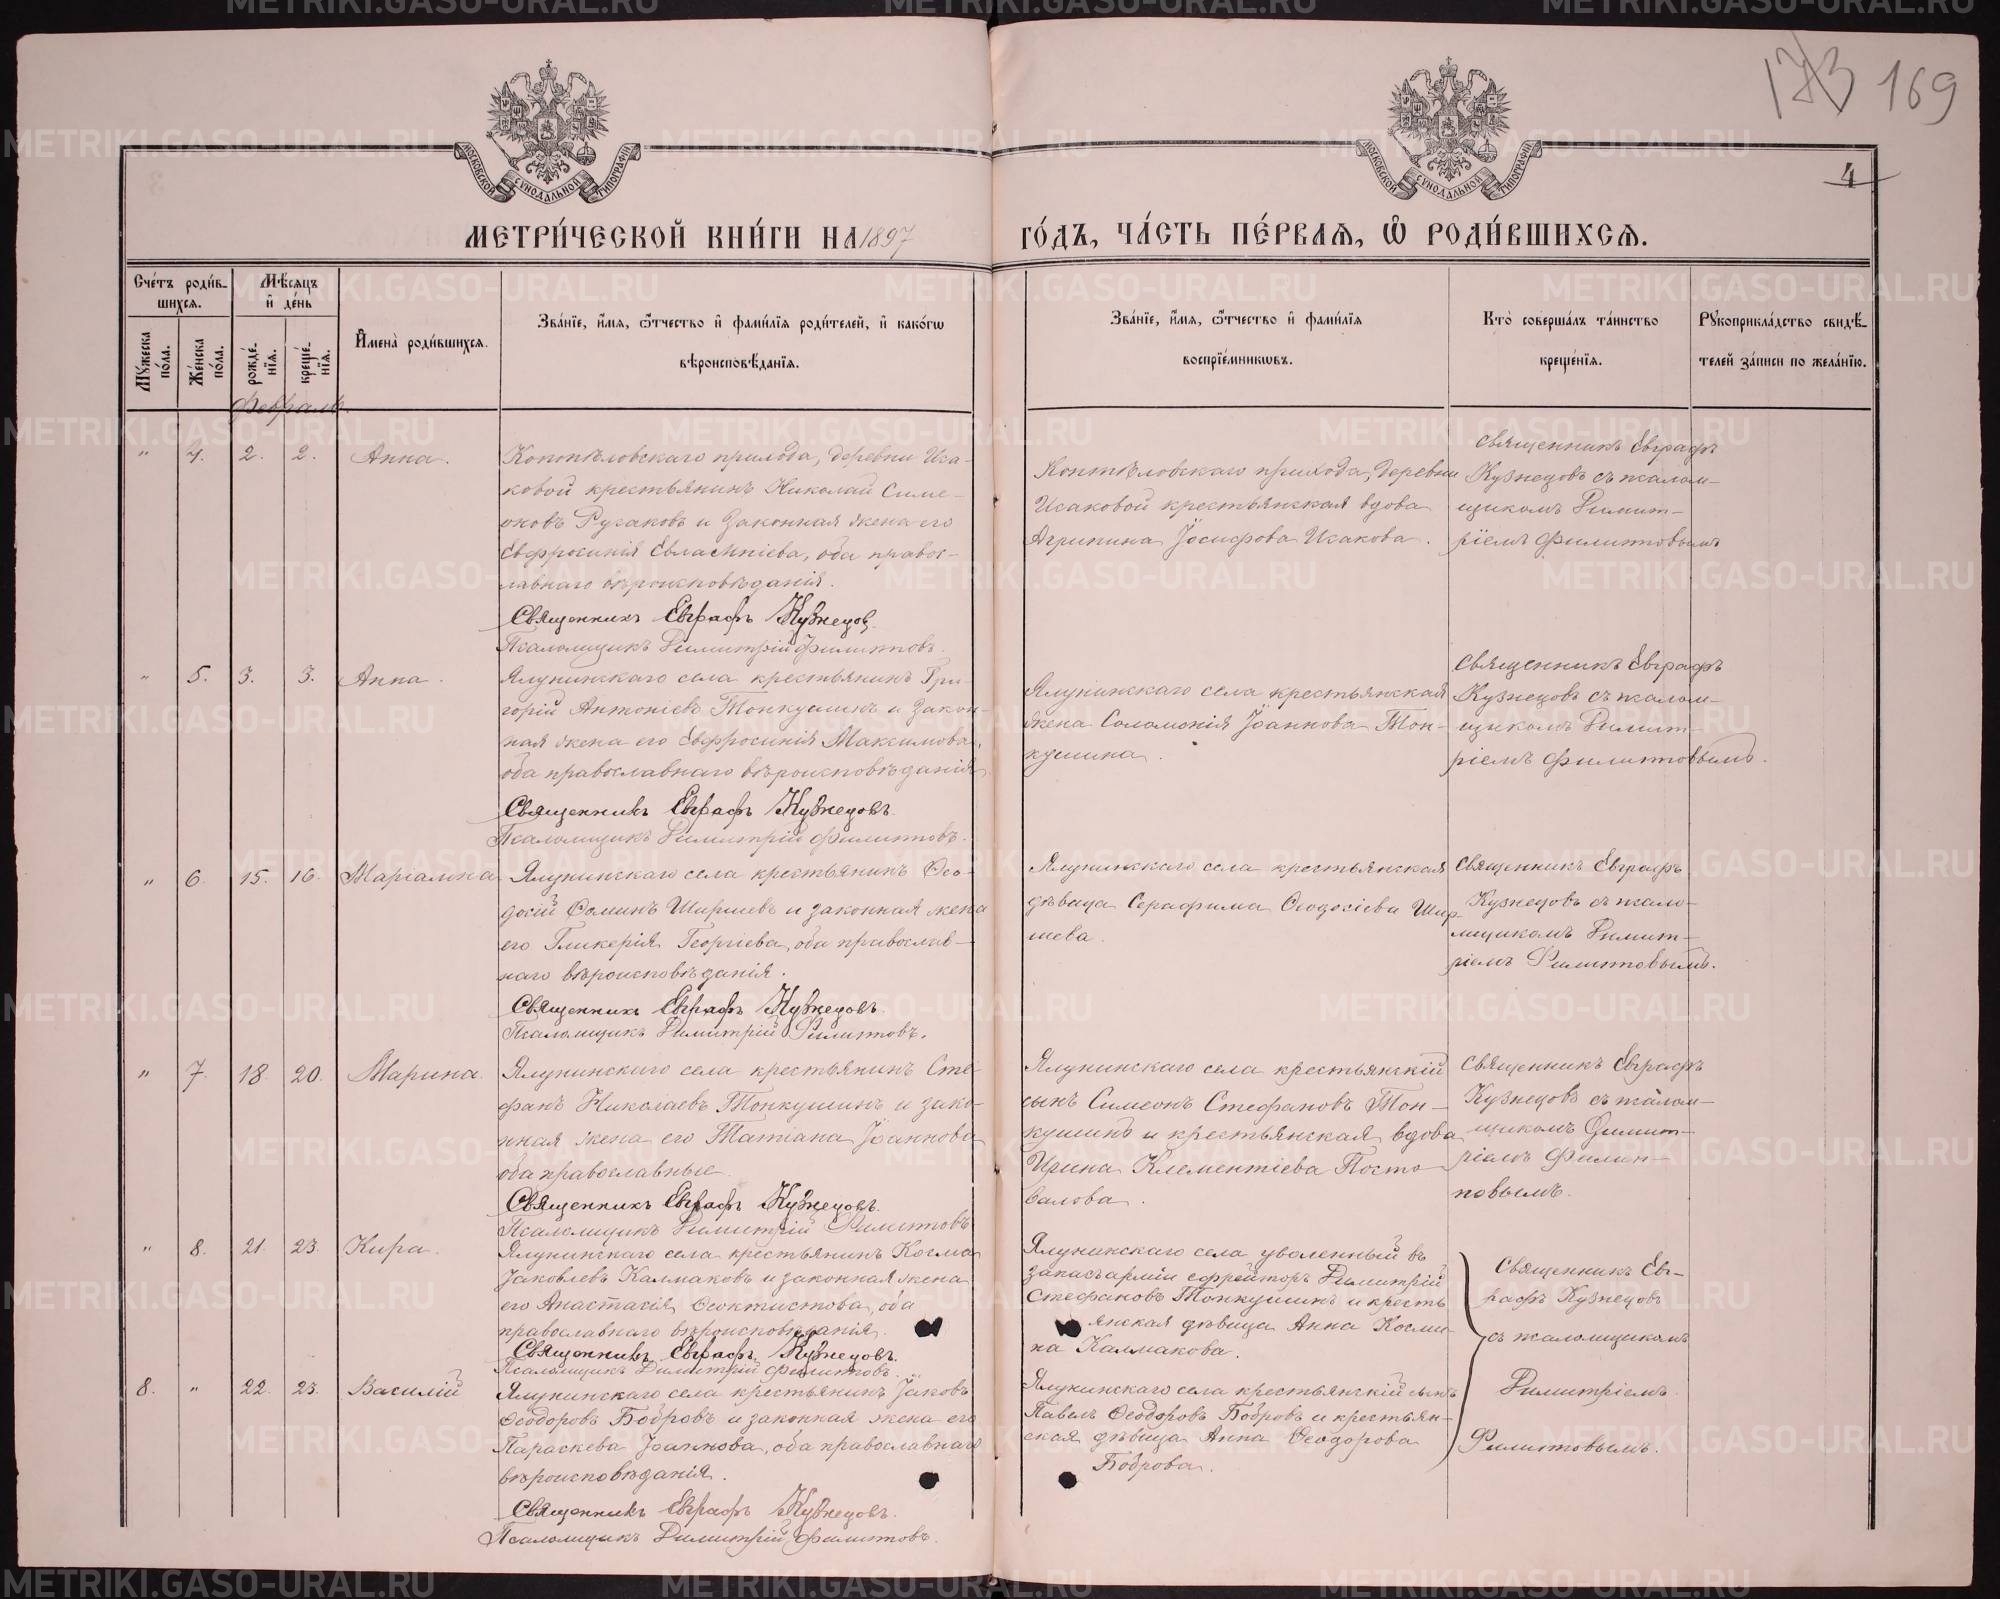 173 169
4
МОСКОВСКОЙ СѴНОДАЛЬНОЙ ТИПОГРАФІИ
МОСКОВСКОЙ СѴНОДАЛЬНОЙ ТИПОГРАФІИ
МЕТРИ́ЧЕСКОЙ КНИ́ГИ НА 1897 ГО́ДЪ, ЧА́СТЬ ПЕ́РВАѦ, Ѡ҆ РОДИ́ВШИХСѦ.
Сче́тъ роди́в-
шихсѧ.
Мѣ́сѧцъ
и҆ де́нь
Мꙋ́жеска
по́ла.
Же́нска
по́ла.
рожде́-
нїѧ.
креще́-
нїѧ.
И҆мена̀ роди́вшихсѧ.
Зва́нїе, и҆́мѧ, ѻ҆́тчество и҆ фами́лїѧ роди́телей, и҆ како́гѡ
вѣроисповѣ́данїѧ.
Зва́нїе, и҆́мѧ, ѻ҆́тчество и҆ фами́лїѧ
воспрїе́мникѡвъ.
Кто̀ соверша́лъ та́инство
креще́нїѧ.
Рꙋкоприкла́дство свидѣ́-
телей за́писи по жела́нїю.
Февраль.
" 4. 2. 2. Анна.
Коптѣловскаго прихода, деревни Иса-
ковой крестьянинъ Николай Симе-
оновъ Русаковъ и законная жена его
Евфросинія Евлампіева, оба правос-
лавнаго вѣроисповѣданія.
Священникъ Евграфъ Кузнецовъ.
Псаломщикъ Димитрій Филитовъ.
Коптѣловскаго прихода, деревни
Исаковой крестьянская вдова
Агрипина Іосифова Исакова.
Священникъ Евграфъ
Кузнецовъ съ псалом-
щикомъ Димит-
ріемъ Филитовымъ
" 5. 3. 3. Анна.
Ялунинскаго села крестьянинъ Гри-
горій Антоніевъ Тонкушинъ и закон-
ная жена его Евфросинія Максимова,
оба православнаго вѣроисповѣданія
Священникъ Евграфъ Кузнецовъ.
Псаломщикъ Димитрій Филитовъ.
Ялунинскаго села крестьянская
жена Соломонія Іоаннова Тон-
кушина.
Священникъ Евграфъ
Кузнецовъ съ псалом-
щикомъ Димит-
ріемъ Филитовымъ.
" 6. 15. 16. Маріамна
Ялунинскаго села крестьянинъ Ѳео-
досій Ѳоминъ Ширшевъ и законная жена
его Гликерія Георгіева, оба православ-
наго вѣроисповѣданія.
Священникъ Евграфъ Кузнецовъ.
Псаломщикъ Димитрій Филитовъ.
Ялунинскаго села крестьянская
дѣвица Серафима Ѳеодосіева Шир-
шева.
Священникъ Евграфъ
Кузнецовъ съ псало-
мщикомъ Димит-
ріемъ Филитовымъ.
" 7. 18. 20. Марина.
Ялунинскаго села крестьянинъ Сте-
фанъ Николаевъ Тонкушинъ и зако-
нная жена его Татіана Іоаннова
оба православные.
Священникъ Евграфъ Кузнецовъ.
Псаломщикъ Димитрій Филитовъ
Ялунинскаго села крестьянскій
сынъ Симеонъ Стефановъ Тон-
кушинъ и крестьянская вдова
Ирина Клементіева Посто-
валова.
Священникъ Евграфъ
Кузнецовъ съ псалом-
щикомъ Димит-
ріемъ Филин-
повымъ.
" 8. 21. 23. Кира.
Ялунинскаго села крестьянинъ Косма
Іаковлевъ Калмаковъ и законная жена
его Анастасія Ѳеоктистова, оба
православнаго вѣроисповѣданія.
Священникъ Евграфъ Кузнецовъ.
Псаломщикъ Димитрій Филитовъ.
Ялунинскаго села уволенный въ
запасъ арміи ефрейторъ Димитрій
Стефановъ Тонкушинъ и кресть
янская дѣвица Анна Косми-
на Калмакова.
Священникъ Ев-
графъ Кузнецовъ
съ псаломщикомъ
8. " 22. 23. Василій
Ялунинскаго села крестьянинъ Іаковъ
Ѳеодоровъ Бобровъ и законная жена его
Параскева Іоаннова, оба православнаго
вѣроисповѣданія.
Священникъ Евграфъ Кузнецовъ.
Псаломщикъ Димитрій Филитовъ.
Ялунинскаго села крестьянскій сынъ
Павелъ Ѳеодоровъ Бобровъ и крестьян-
ская дѣвица Анна Ѳеодорова
Боброва.
Димитріемъ
Филитовымъ.